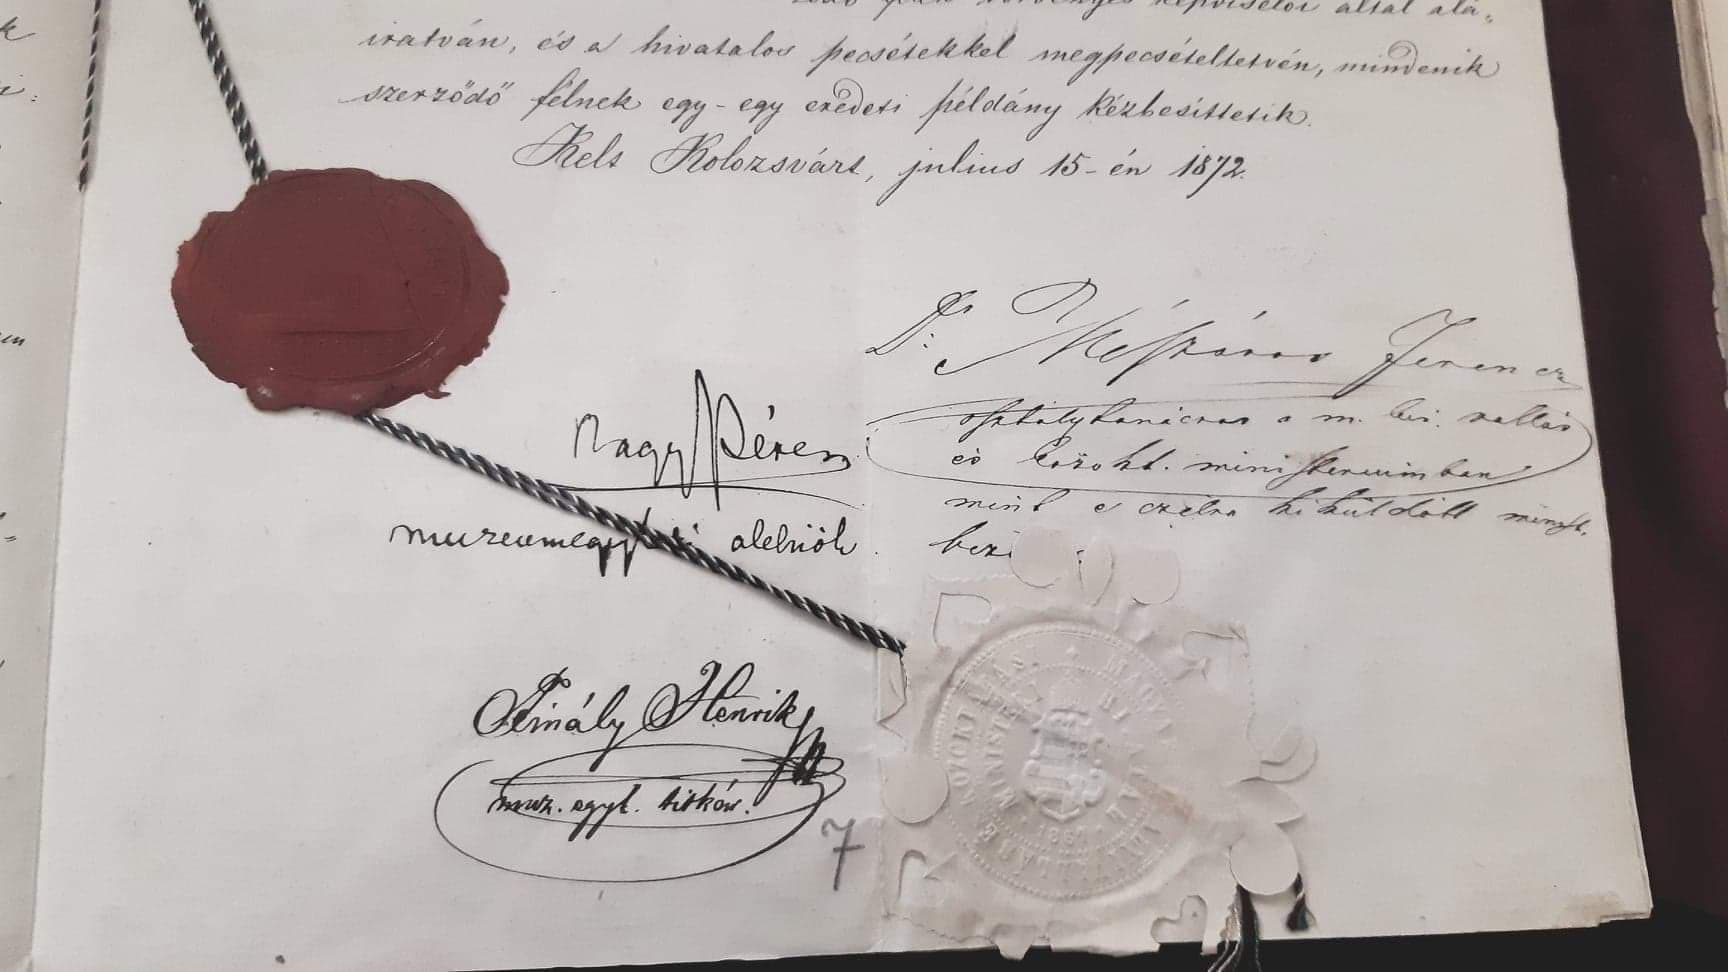 törvényes képviselői által alá-
iratván, és a hivatalos pecsétekkel megpecsételtetvén, mindenik
szerződő félnek egy-egy eredeti példány kézbesíttetik.
Kelt Kolozsvárt, julius 15-én 1872.
Dr. Mészáros Ferencz
osztálytanácsos a m. kir. vallás
és közokt. ministeriumban
mint e czélra kiküldött
Nagy Péter
muzeumegyleti alelnök
Finály Henrik
muz. egyl. titkár.
7